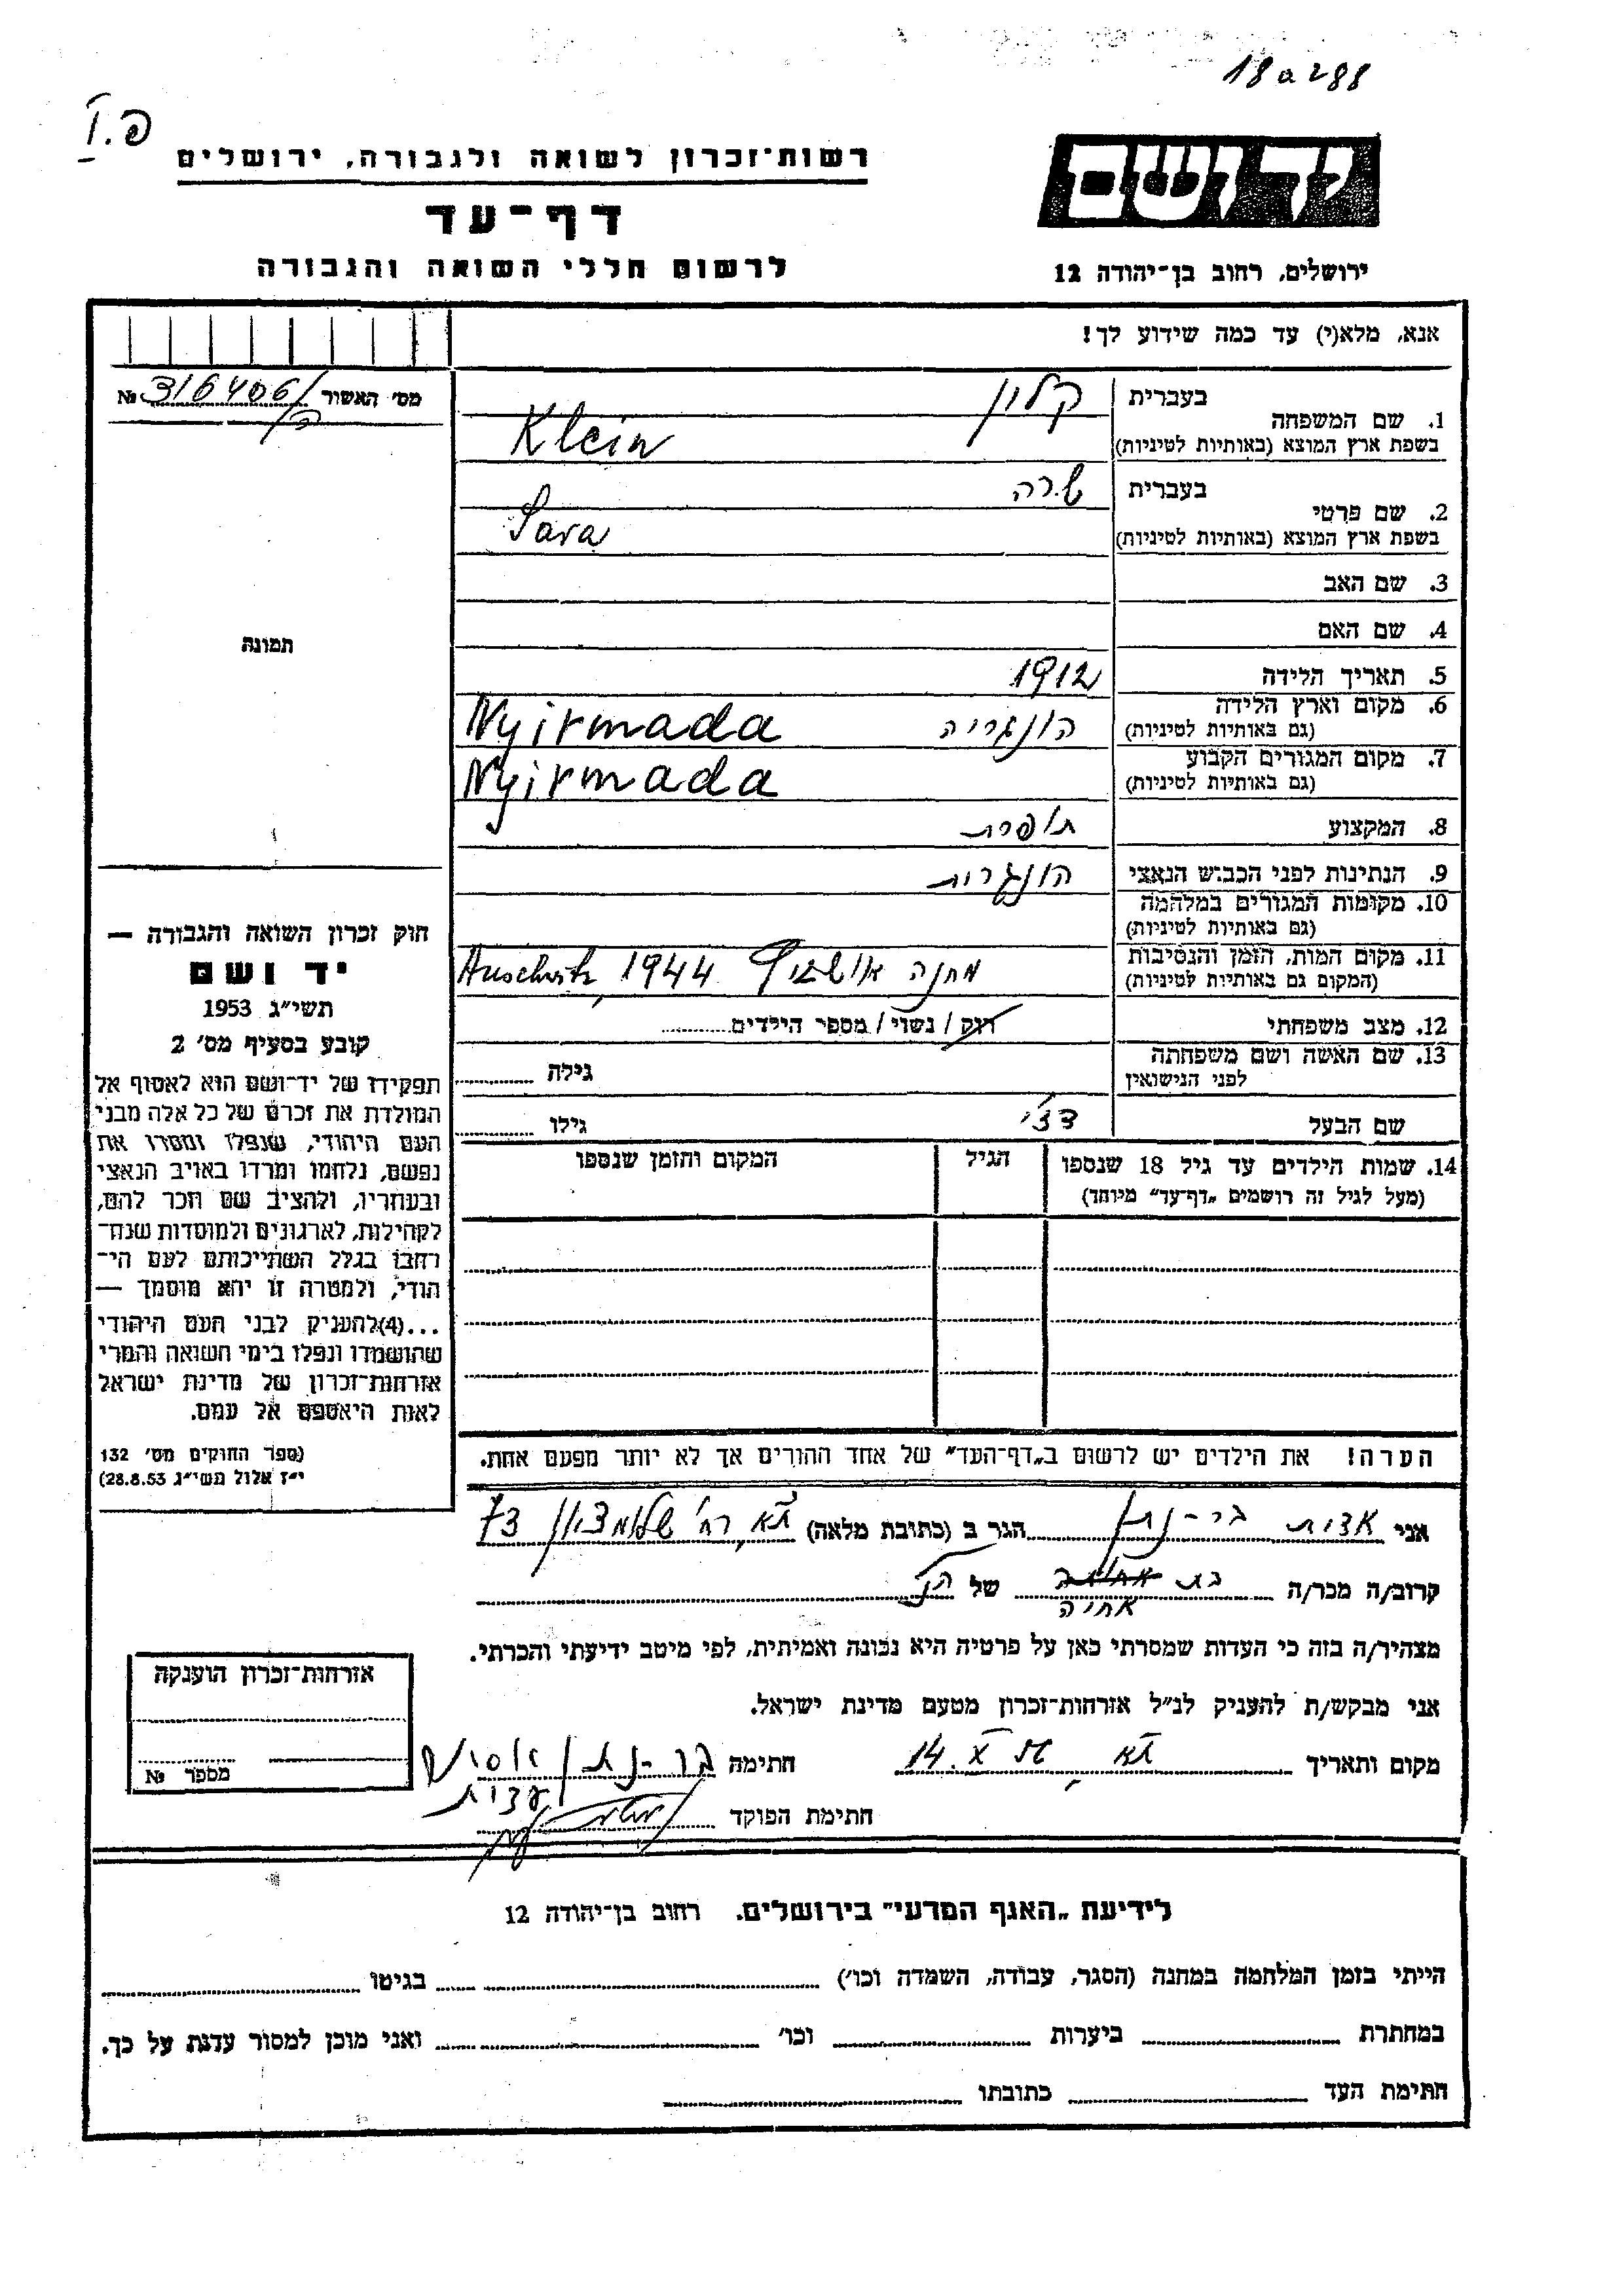 18a288
פ.I
רשות־זכרון לשואה ולגבורה, ירושלים
יד ושם
דף־עד
לרשום חללי השואה והגבורה
ירושלים, רחוב בן־יהודה 12
אנא, מלא(י) עד כמה שידוע לך!
מס' האשור № 316406/
1. שם המשפחה בעברית קליין
בשפת ארץ המוצא (באותיות לטיניות) Klein
2. שם פרטי בעברית שרה
בשפת ארץ המוצא (באותיות לטיניות) Sara
3. שם האב
4. שם האם
תמונה
5. תאריך הלידה 1912
6. מקום וארץ הלידה (גם באותיות לטיניות) הונגריה Nyirmada
7. מקום המגורים הקבוע (גם באותיות לטיניות) Nyirmada
8. המקצוע תופרת
9. הנתינות לפני הכבוש הנאצי הונגרית
10. מקומות המגורים במלחמה (גם באותיות לטיניות)
11. מקום המות, הזמן והנסיבות (המקום גם באותיות לטיניות) מחנה אושוויץ Auschwitz, 1944
12. מצב משפחתי רווק / נשוי / מספר הילדים
13. שם האשה ושם משפחתה לפני הנישואין גילה
שם הבעל גילו
14. שמות הילדים עד גיל 18 שנספו הגיל המקום והזמן שנספו
(מעל לגיל זה רושמים „דף־עד” מיוחד)
חוק זכרון השואה והגבורה —
יד ושם
תשי״ג 1953
קובע בסעיף מס' 2
תפקידו של יד־ושם הוא לאסוף אל
המולדת את זכרם של כל אלה מבני
העם היהודי, שנפלו ומסרו את
נפשם, נלחמו ומרדו באויב הנאצי
ובעוזריו, ולהציב שם וזכר להם,
לקהילות, לארגונים ולמוסדות שנח־
רבו בגלל השתייכותם לעם הי־
הודי, ולמטרה זו יהא מוסמך —
...(4) להעניק לבני העם היהודי
שהושמדו ונפלו בימי השואה והמרי
אזרחות־זכרון של מדינת ישראל
לאות היאספם אל עמם.
(ספר החוקים מס' 132
י״ז אלול תשי״ג 28.8.53)
הערה! את הילדים יש לרשום ב„דף־העד” של אחד ההורים אך לא יותר מפעם אחת.
אני בר-נתן הגר ב (כתובת מלאה) ת״א, רח' שלומציון 73
קרוב/ה מכר/ה בת אחיה של הנ״ל
מצהיר/ה בזה כי העדות שמסרתי כאן על פרטיה היא נכונה ואמיתית, לפי מיטב ידיעתי והכרתי.
אני מבקש/ת להעניק לנ״ל אזרחות־זכרון מטעם מדינת ישראל.
מקום ותאריך ת״א, 14.X חתימה בר-נתן
חתימת הפוקד
אזרחות־זכרון הוענקה
מספר №
לידיעת „האגף המדעי” בירושלים. רחוב בן־יהודה 12
הייתי בזמן המלחמה במחנה (הסגר, עבודה, השמדה וכו') בגיטו
במחתרת ביערות וכו' ואני מוכן למסור עדות על כך.
חתימת העד כתובתו